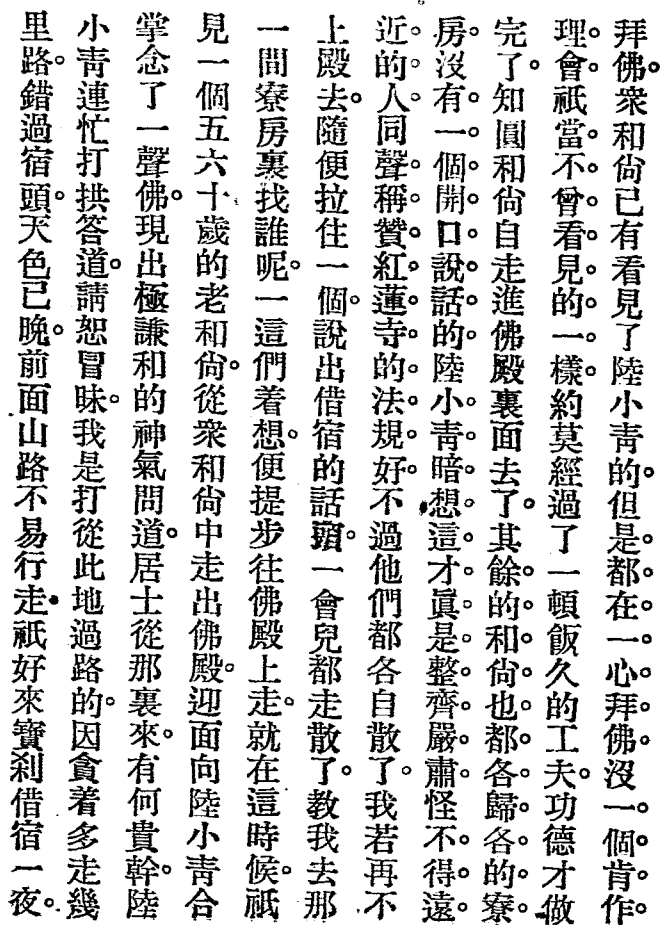 拜佛。衆和尙已有看見了陸小靑的。但是都在一心拜佛。沒一個肯作
理會。祇當不曾看見的一樣。約莫經過了一頓飯久的工夫。功德才做
完了。知圓和尙自走進佛殿裏面去了。其餘的和尙也都各歸各的寮
房。沒有一個開口說話的。陸小靑暗想這才眞是整齊嚴肅。怪不得遠
近的人。同聲稱贊紅蓮寺的法規好。不過他們都各自散了。我若再不
上殿去。隨便拉住一個。說出借宿的話頭。一會兒都走散了。敎我去那
一間寮房裏找誰呢。一這們着想。便提步往佛殿上走。就在這時候。祇
見一個五六十歲的老和尙。從衆和尙中走出佛殿。迎面向陸小靑合
掌念了一聲佛。現出極謙和的神氣問道。居士從那裏來。有何貴幹。陸
小靑連忙打拱答道。請恕冒昧。我是打從此地過路的。因貪着多走幾
里路。錯過宿頭。天色已晚。前面山路不易行走。祇好來寶刹借宿一夜。